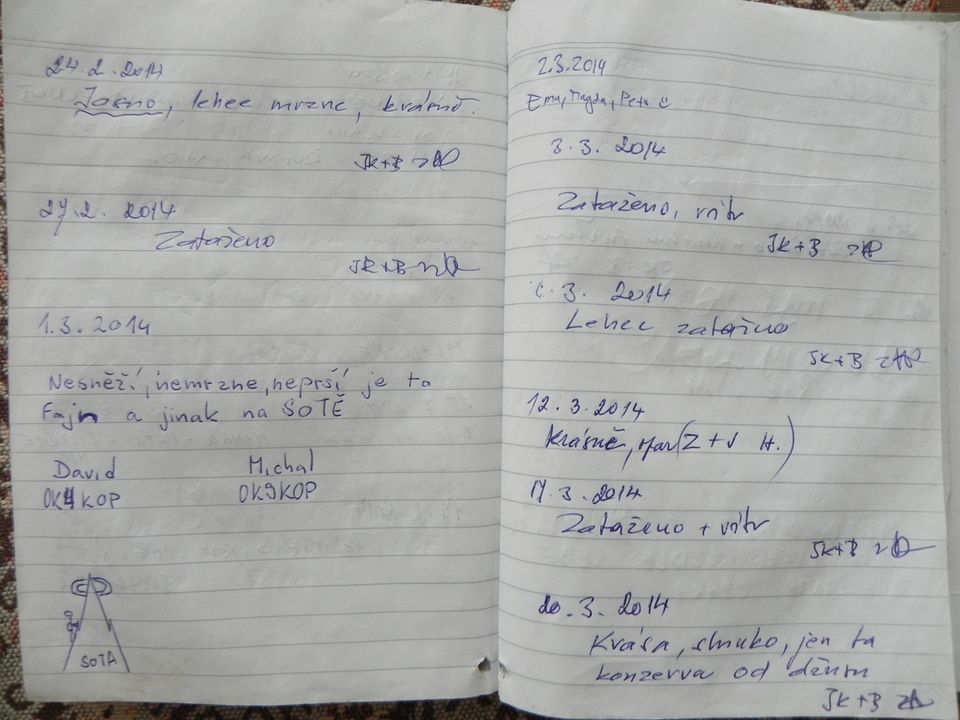 24.2.2014
Jasno, lehce mrzne, krásně.
JK+B
27.2. 2014
Zataženo
JK+B
1.3.2014
Nesněží, nemrzne, neprší je to
Fajn a jinak na SOTĚ
David Michal
OK4KOP OK9KOP
SOTA
2.3.2014
Ema, Magda, Petr
3.3. 2014
Zataženo, vítr
JK+B
3. 2014
Lehce zataženo
JK+B
12.3.2014
Krásně, (Z+J H.)
3.2014
Zataženo + vítr
JK+B
20.3.2014
Krása, slunko, jen ta
konzerva od džusu
JK+B